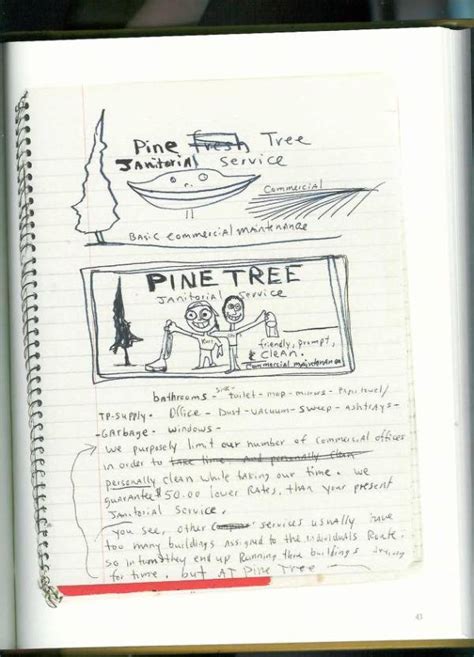 Pine Fresh Tree
Janitorial Service
Commercial
BASIC Commercial Maintenance
PINE TREE
Janitorial Service
friendly, prompt,
& CLEAN.
Commercial Maintenance
bathrooms - sink - toilet - mop - mirrors - Papertowel/
TP-supply - Office - Dust - Vacuum - Sweep - ashtrays -
-Garbage. Windows -
We purposely limit our number of commercial offices
in order to take time. And personally clean
personally clean while taking our time. We
guarantee $50.00 lower Rates, than your present
Janitorial Service.
You see, other services usually have
too many buildings assigned to the individuals Route.
So in turn they end up Running there buildings
for time. but AT Pine Tree
43